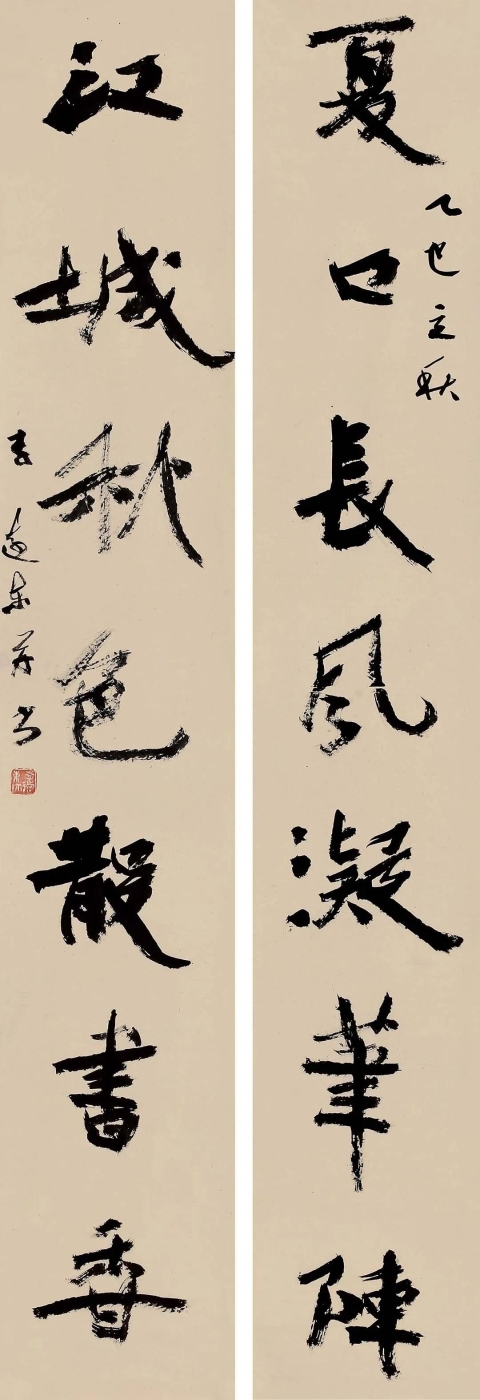 夏口長風凝筆陣
乙巳立秋
江城秋色散書香
李遠東並書